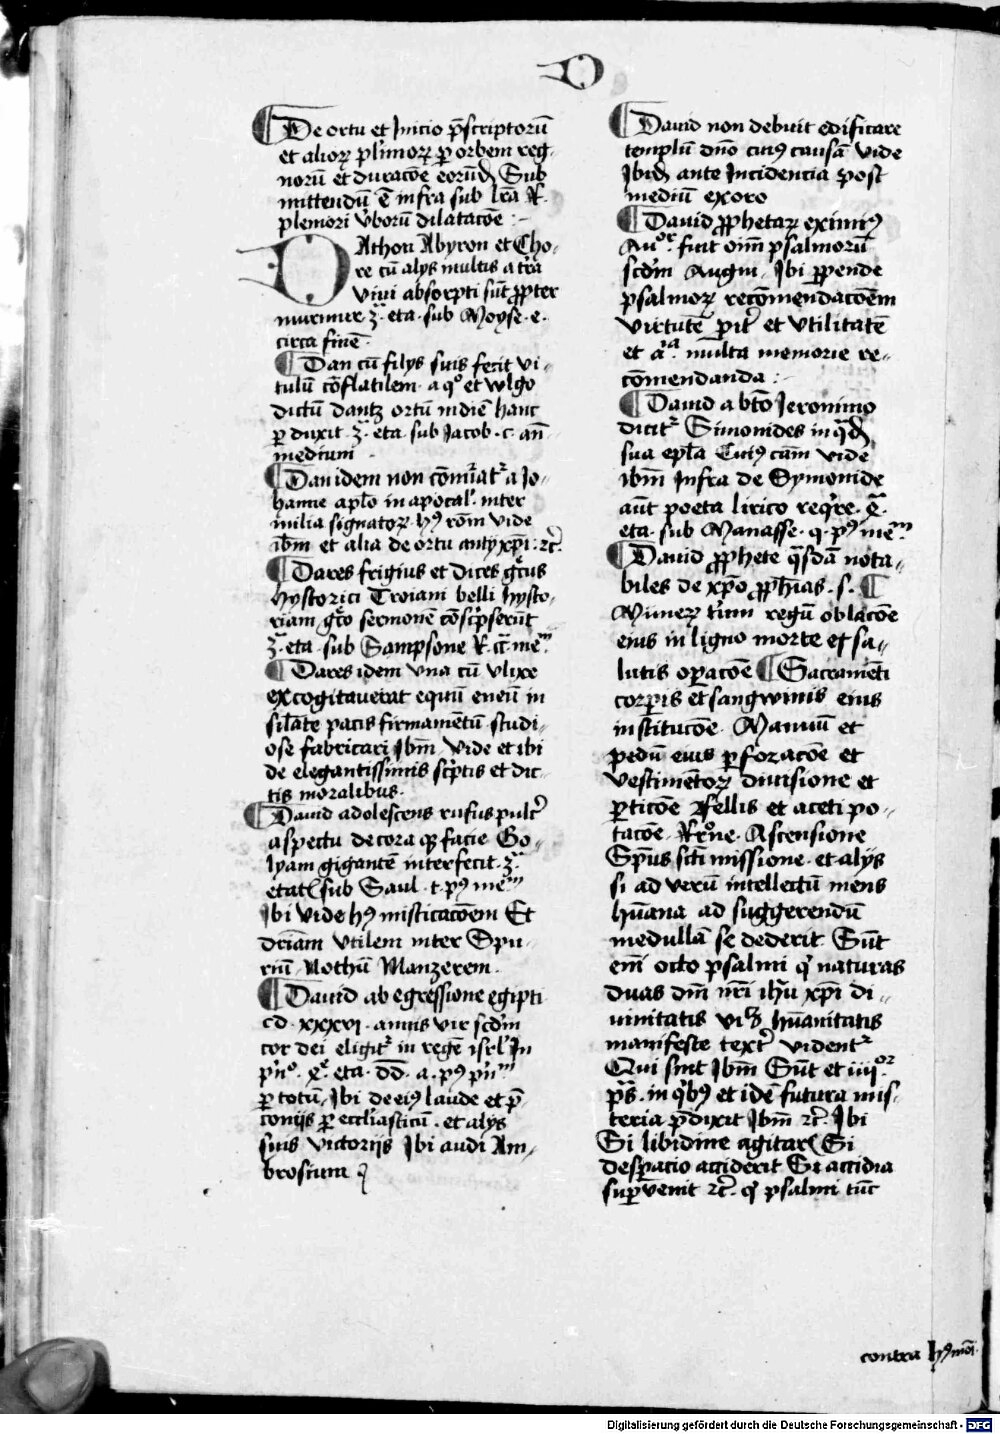 D
¶ De ortu et Inicio p̄scriptorū
et alioꝝ pl'imoꝝ ꝑ orbem reg-
norū et duracōe eorūdꝫ Sub
mittendū ē infra sub lr̄a R.
plemori v̓borū dilatacōe :-
DAthon Abyron et Cho-
re cū alys multis a t'ra
vivi absorpti sūt ꝓpter
murmur 3ᵃ. eta. sub Moyse. e.
circa finē
¶ Dan cū filys suis fecit vi-
tulū cōflatilem. a qᵒ et wlgo
dictū dantz ortū indiē hanc
ꝑduxit. 3ᵃ. eta. sub Jacob. c. an̄
medium.
¶ Dan idem non cōm̄ıatᷣ a Jo-
hanne apl̄o in apocal'. inter
milia signatoꝝ. hꝰ rōm vide
ib̄m et alia de ortu antyxp̄i. ⁊c̄.
¶ Dares frigius et Dites grecus
hystorici Troiani belli hysto-
riam grēco sermonē cōscp̓serūt
3ᵃ. eta. sub Sampsone R. cᵃ. meᵐ.
¶ Dares idem una cū vlixe
excogitauerat equū eneū in
sil̄ate pacis firmamētū studi-
ose fabricari Jb̄m. vide et ibi
de elegantissimis scp̓tis et dic-
tis moralibus.
¶ Dauid adolescens rufus pulcᷣ
aspectu decora qꝫ facie Go-
lyam gigantē interfecit. 3ᵃ.
etatꝭ sub Saul. t. pꝰ meᵐ
Jbi vide hꝰ misticacōem Et
dr̄iam vtilem inter Spu-
riū. Nothū Manzerem.
¶ Dauid ab egressione egipti
cd. xxxvi. annis vir scd̄m
cor dei eligitᷣ in regē isrl̄ Jn
pn̓ᵒ. 4ᵉ. eta. d̄d. a. pꝰ pn̓ᵐ
ꝑ totū. Jbi de eiꝰ laude et p̄-
conijs ꝑ eccl̄iasticū. et alys
suis victorijs Jbi audi Am-
brosium
¶ Dauid non debuit edificare
templū dn̄o cuiꝰ causā vide
Jbidꝫ ante Incidencia post
mediū exoro
¶ Dauid ꝓphetaꝝ eximiꝰ
Auᵒʳ. fuit om̄ psalmorū
scd̄m Augu. Jbi ꝑpende
psalmoꝝ recōmendacōem
virtutē pit̓ et vtilitatē
et aᵃ. multa memorie re-
cōmendanda :-
¶ Dauid a bt̄o Jeronimo
dicitᷣ Simonides in qᵃdꝫ
sua epl̄a Cuiꝰ cām vide
ib̄m Infra de Symonide
aūt poeta lirico reqᷣre. 4ᵃ.
eta. sub Manasse. q. pꝰ meᵐ.
¶ Dauid ꝓphete qᵃsdā nota-
biles de xp̄o ꝓph̄ias. s. ¶
Muneꝝ t'um regū oblacōe
eius in ligno morte et sa-
lutis oꝑacōe ¶ Sacramēti
corꝑis et sangwinis eius
institucōe. Manuū et
pedū eius ꝑforacōe et
vestimētoꝝ diuisione et
ꝑticōe. Fellis et aceti po-
tacōe. Rrᵒne. Ascensione
Sp̄us scī missione. et alyīs
si ad verū intellectū mens
hūana ad suggerendū
medullā se dederit. Sūt
em̄ octo psalmi qᷣ naturas
duas dn̄i nr̄i ih̄u xp̄i di-
uinitatis vidꝫ hūanitatis
manifeste textᷣ videntᷣ
Qui sint Jb̄m Sūt et iiijᵒʳ
pᵃs. in qᷣbꝰ et idē futura mis-
teria p̄dixit Jb̄m ⁊c̄. Jbi
Si libidine agitarꝭ Si
despacio acciderit Si accidia
suꝑvenit ⁊c̄. qᷣ psalmi tūc
contra hꝰmōi.
Digitalisierung gefördert durch die Deutsche Forschungsgemeinschaft - DFG